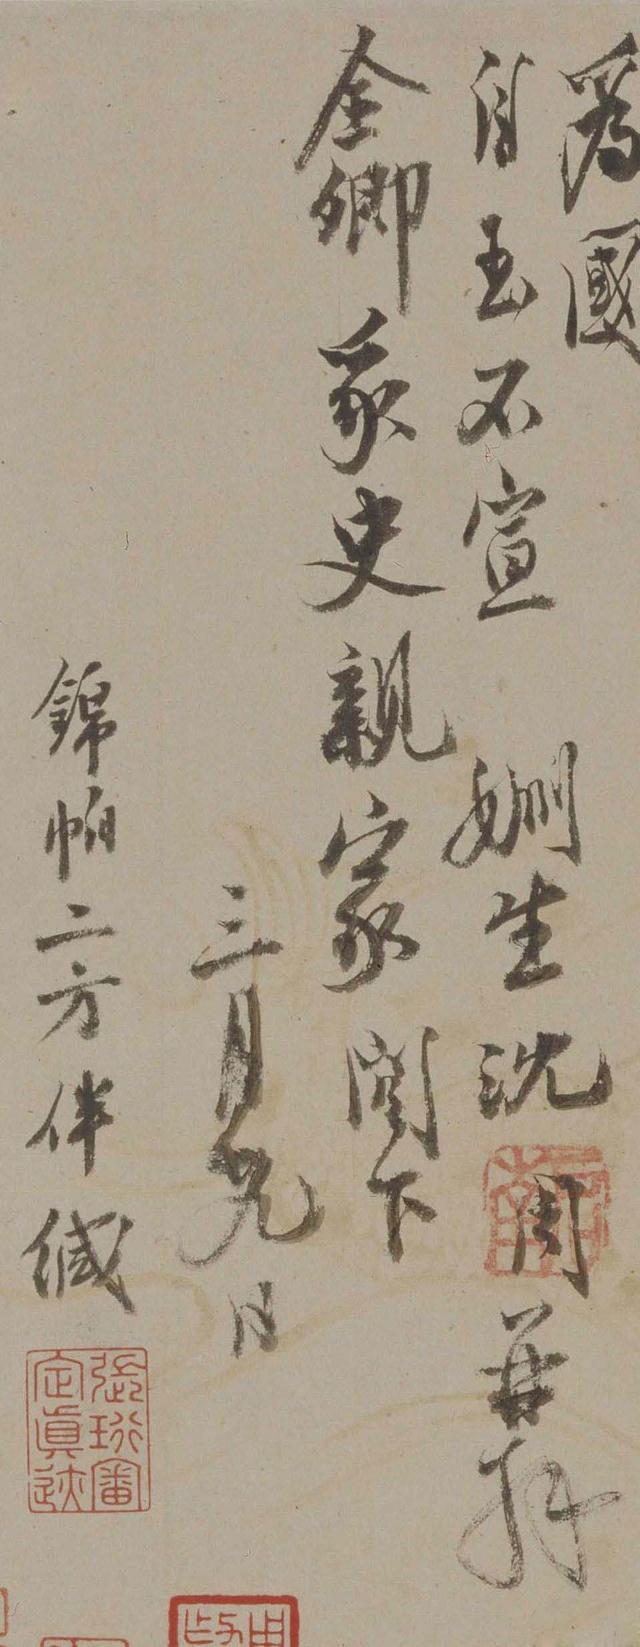 為國
自玉不宣 姻生沈周再拜
全卿冢史親家閣下
三月九日
錦帕二方伴緘
張珩審定真迹